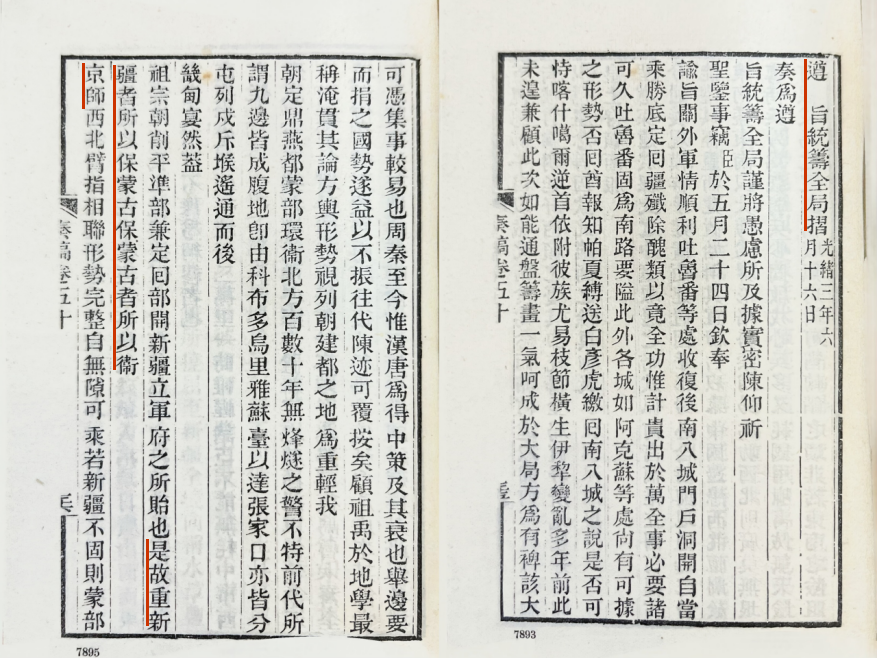 遵　旨統籌全局摺 光緒三年六月十六日
奏爲遵
旨統籌全局謹將愚慮所及據實密陳仰祈
聖鑒事竊臣於五月二十四日欽奉
諭旨關外軍情順利吐魯番等處收復後南八城門戶洞開自當
乘勝底定回疆殲除醜類以竟全功惟計貴出於萬全事必要諸
可久吐魯番固爲南路要隘此外各城如阿克蘇等處尚有可據
之形勢否回酋報知帕夏縛送白彥虎繳回南八城之說是否可
恃喀什噶爾逆首依附彼族尤易枝節橫生伊犁變亂多年前此
未遑兼顧此次如能通盤籌畫一氣呵成於大局方爲有裨該大
奏稿卷五十
7893
可憑集事較易也周秦至今惟漢唐爲得中策及其衰也舉邊要
而捐之國勢遂益以不振往代陳迹可覆按矣顧祖禹於地學最
稱淹貫其論方輿形勢視列朝建都之地爲重輕我
朝定鼎燕都蒙部環衛北方百數十年無烽燧之警不特前代所
謂九邊皆成腹地卽由科布多烏里雅蘇臺以達張家口亦皆分
屯列戍斥堠遙通而後
畿甸宴然蓋
祖宗朝削平準部兼定回部開新疆立軍府之所貽也是故重新
疆者所以保蒙古保蒙古者所以衛
京師西北臂指相聯形勢完整自無隙可乘若新疆不固則蒙部
奏稿卷五十
7895